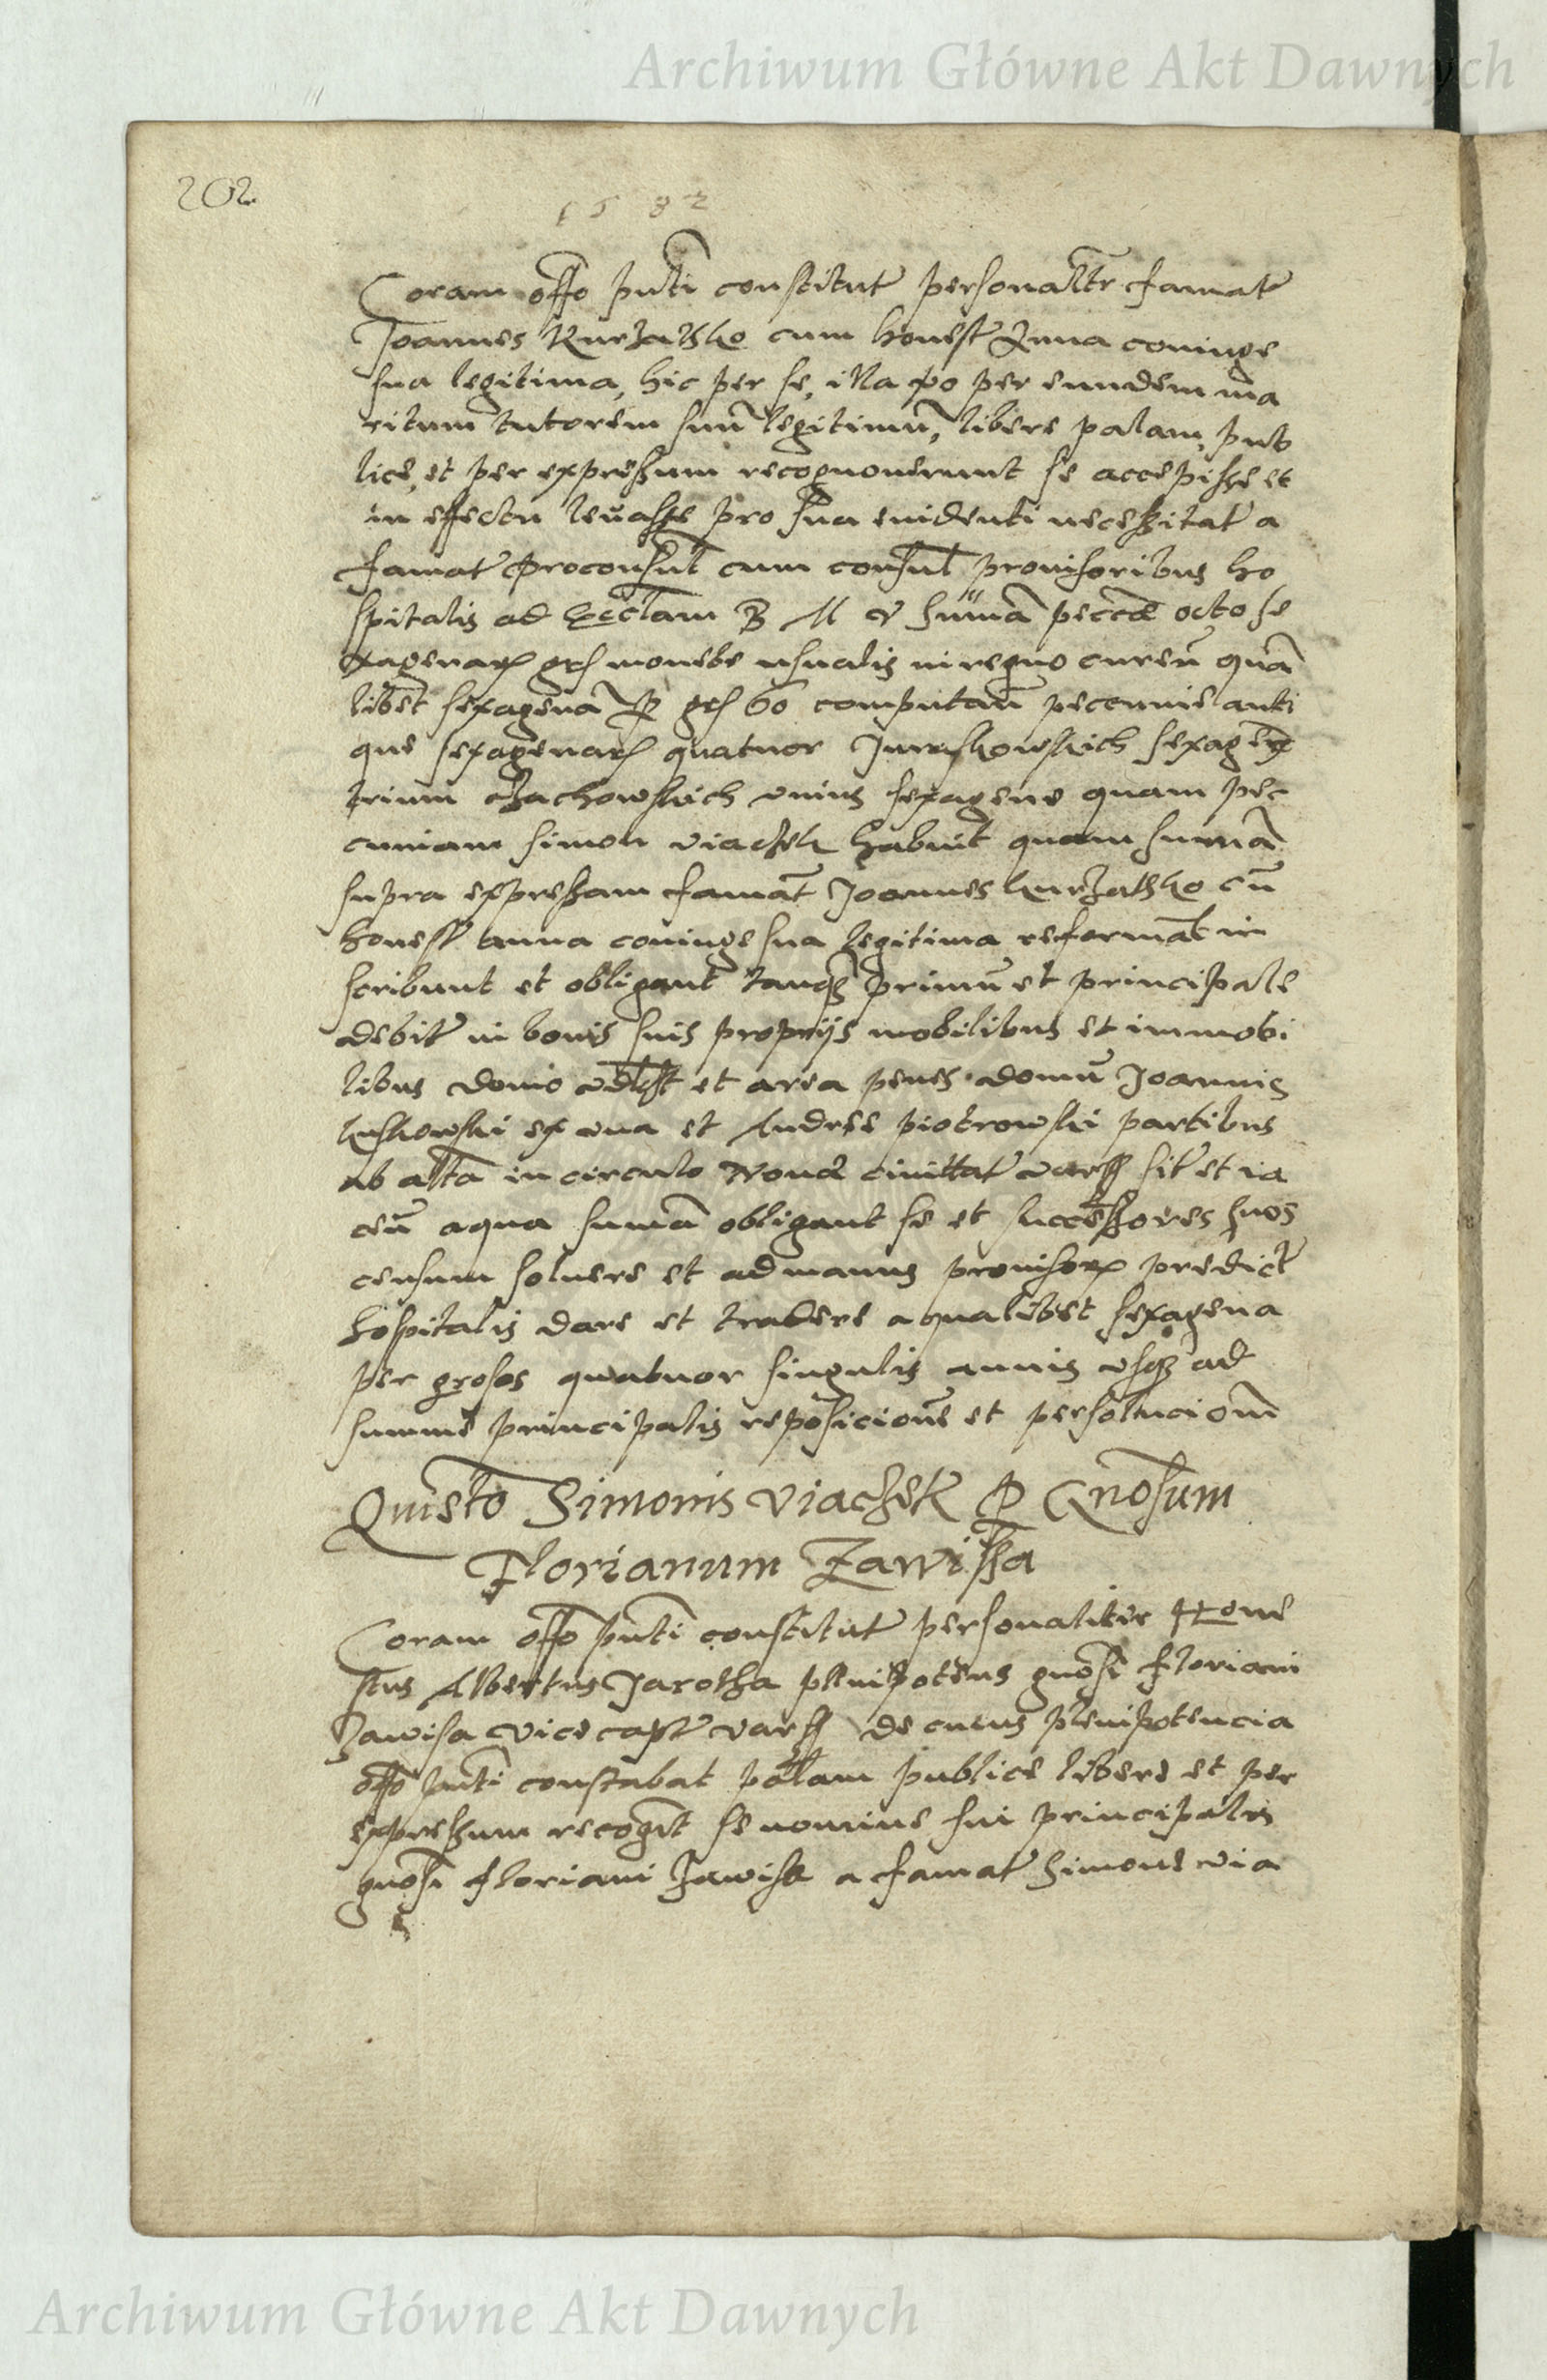 Archiwum Główne Akt Dawnych
202
1582
Coram offo pnti constitut personaltr famat
Joannes Kurzathko cum honest Anna coniuge
sua legitima, hic per se, illa vo per eundem ma
ritum tutorem suu legitimu, libere palam, pub
lice, et per expressum recognouerunt se accepisse et
in effectu leuasse pro sua euidenti necessitat a
famat Proconsul cum consul prouisoribus ho
spitalis ad Ecclam B M V summa peccae octo se
xagenar gros monete usualis in regno curen qua
libet sexagena P gros 60 computan peccunie anti
que sexagenar quatuor sexagen
trium vnius sexagene quam pec
cuniam Simon Viaczek habuit quam summa
supra expressam famat Joannes Kurzathko cu
honest anna coniuge sua legitima reformat in
scribunt et obligant tanq primu et principale
debit in bonis suis proprijs mobilibus et immobi
libus domo et area penes domu Joannis
ex vna et Andree Piotrowski partibus
ab alta in circulo Noue ciuitat Warss sit et ia
cen a qua summa obligant se et successores suos
censum soluere et ad manus prouisor predict
hospitalis dare et tradere a qualibet sexagena
per grosos quatuor singulis annis vsq ad
summe principalis reposicione et persolucione
Quietto Simonis Viaczek P Gnosum
Florianum Zawissa
Coram offo pnti constitut personaliter Hone
stus Albertus Jarotha plenipotens gnosi Floriani
Zawisa Vicecapt Warss de cuius plenipotencia
offo pnti constabat palam publice libere et per
expressum recognt se nomine sui principalis
gnosi Floriani Zawisa a famat Simone Via
Archiwum Główne Akt Dawnych